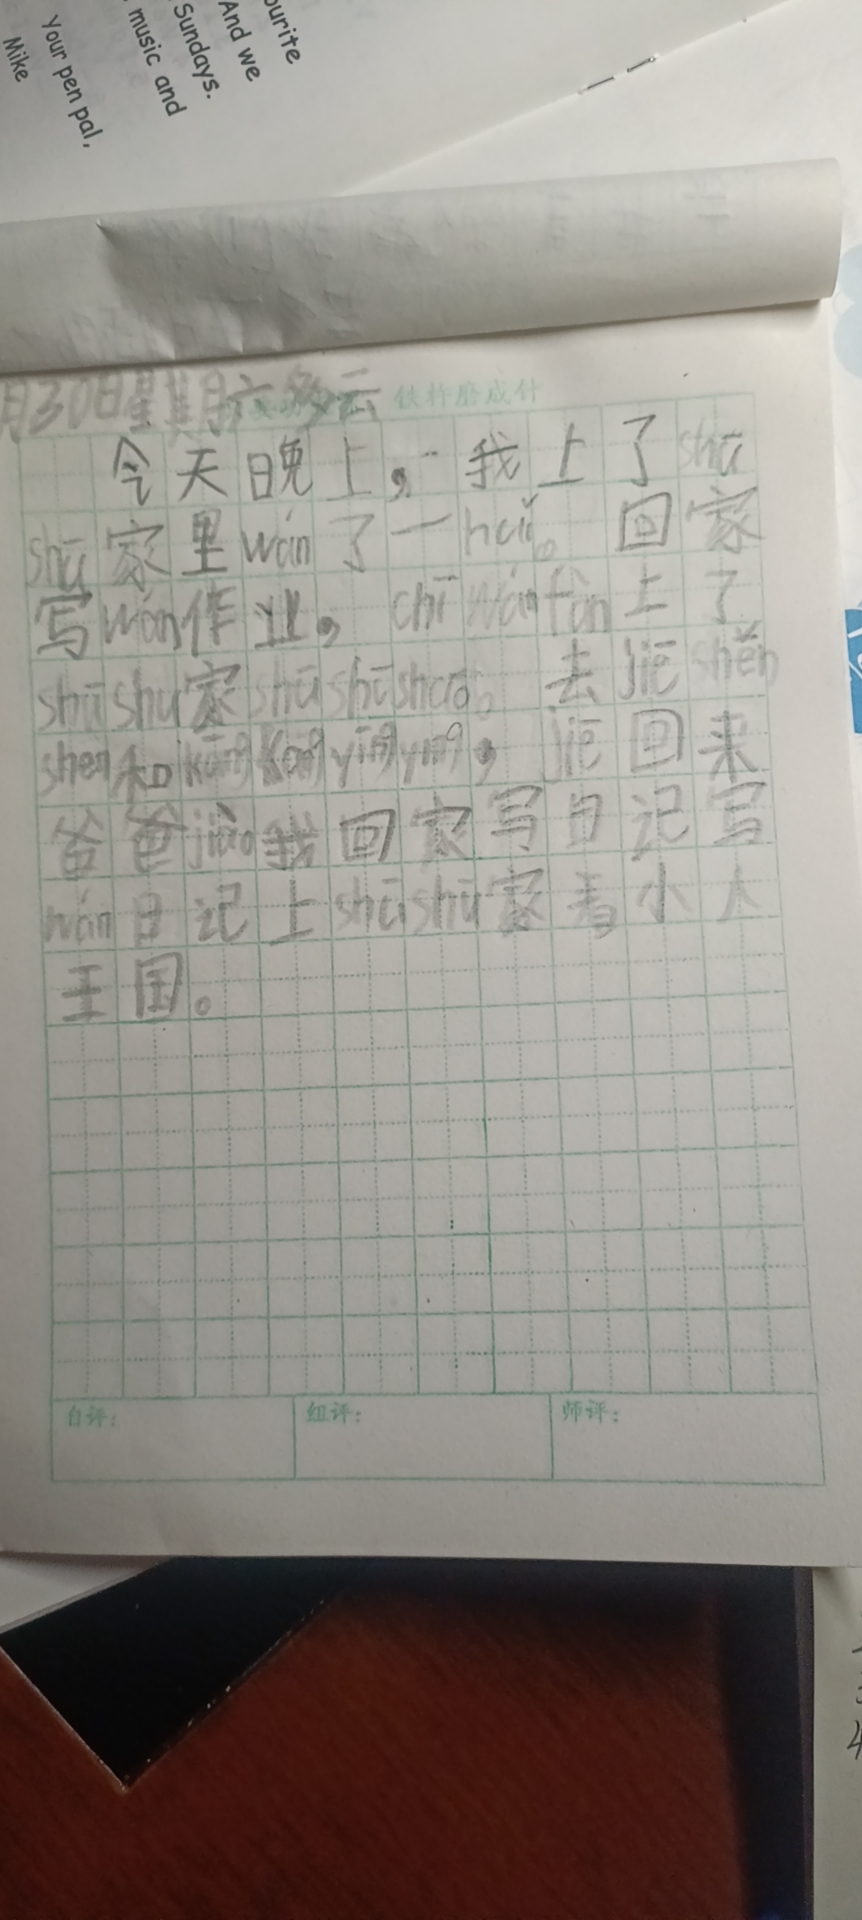 ourite
And we
Sundays.
music and
Your pen pal,
Mike
月30日星期六多云
铁杵磨成针
今天晚上，我上了shū
shū家里wán了一huǐ。回家
写wán作业，chī wán fàn上了
shū shu家shū shī shuō。去jiē shěn
shen和kāng kāng yīng yīng，jiē回来
爸爸jiāo我回家写日记写
wán日记上shū shū家看小人
王国。
自评：
组评：
师评：